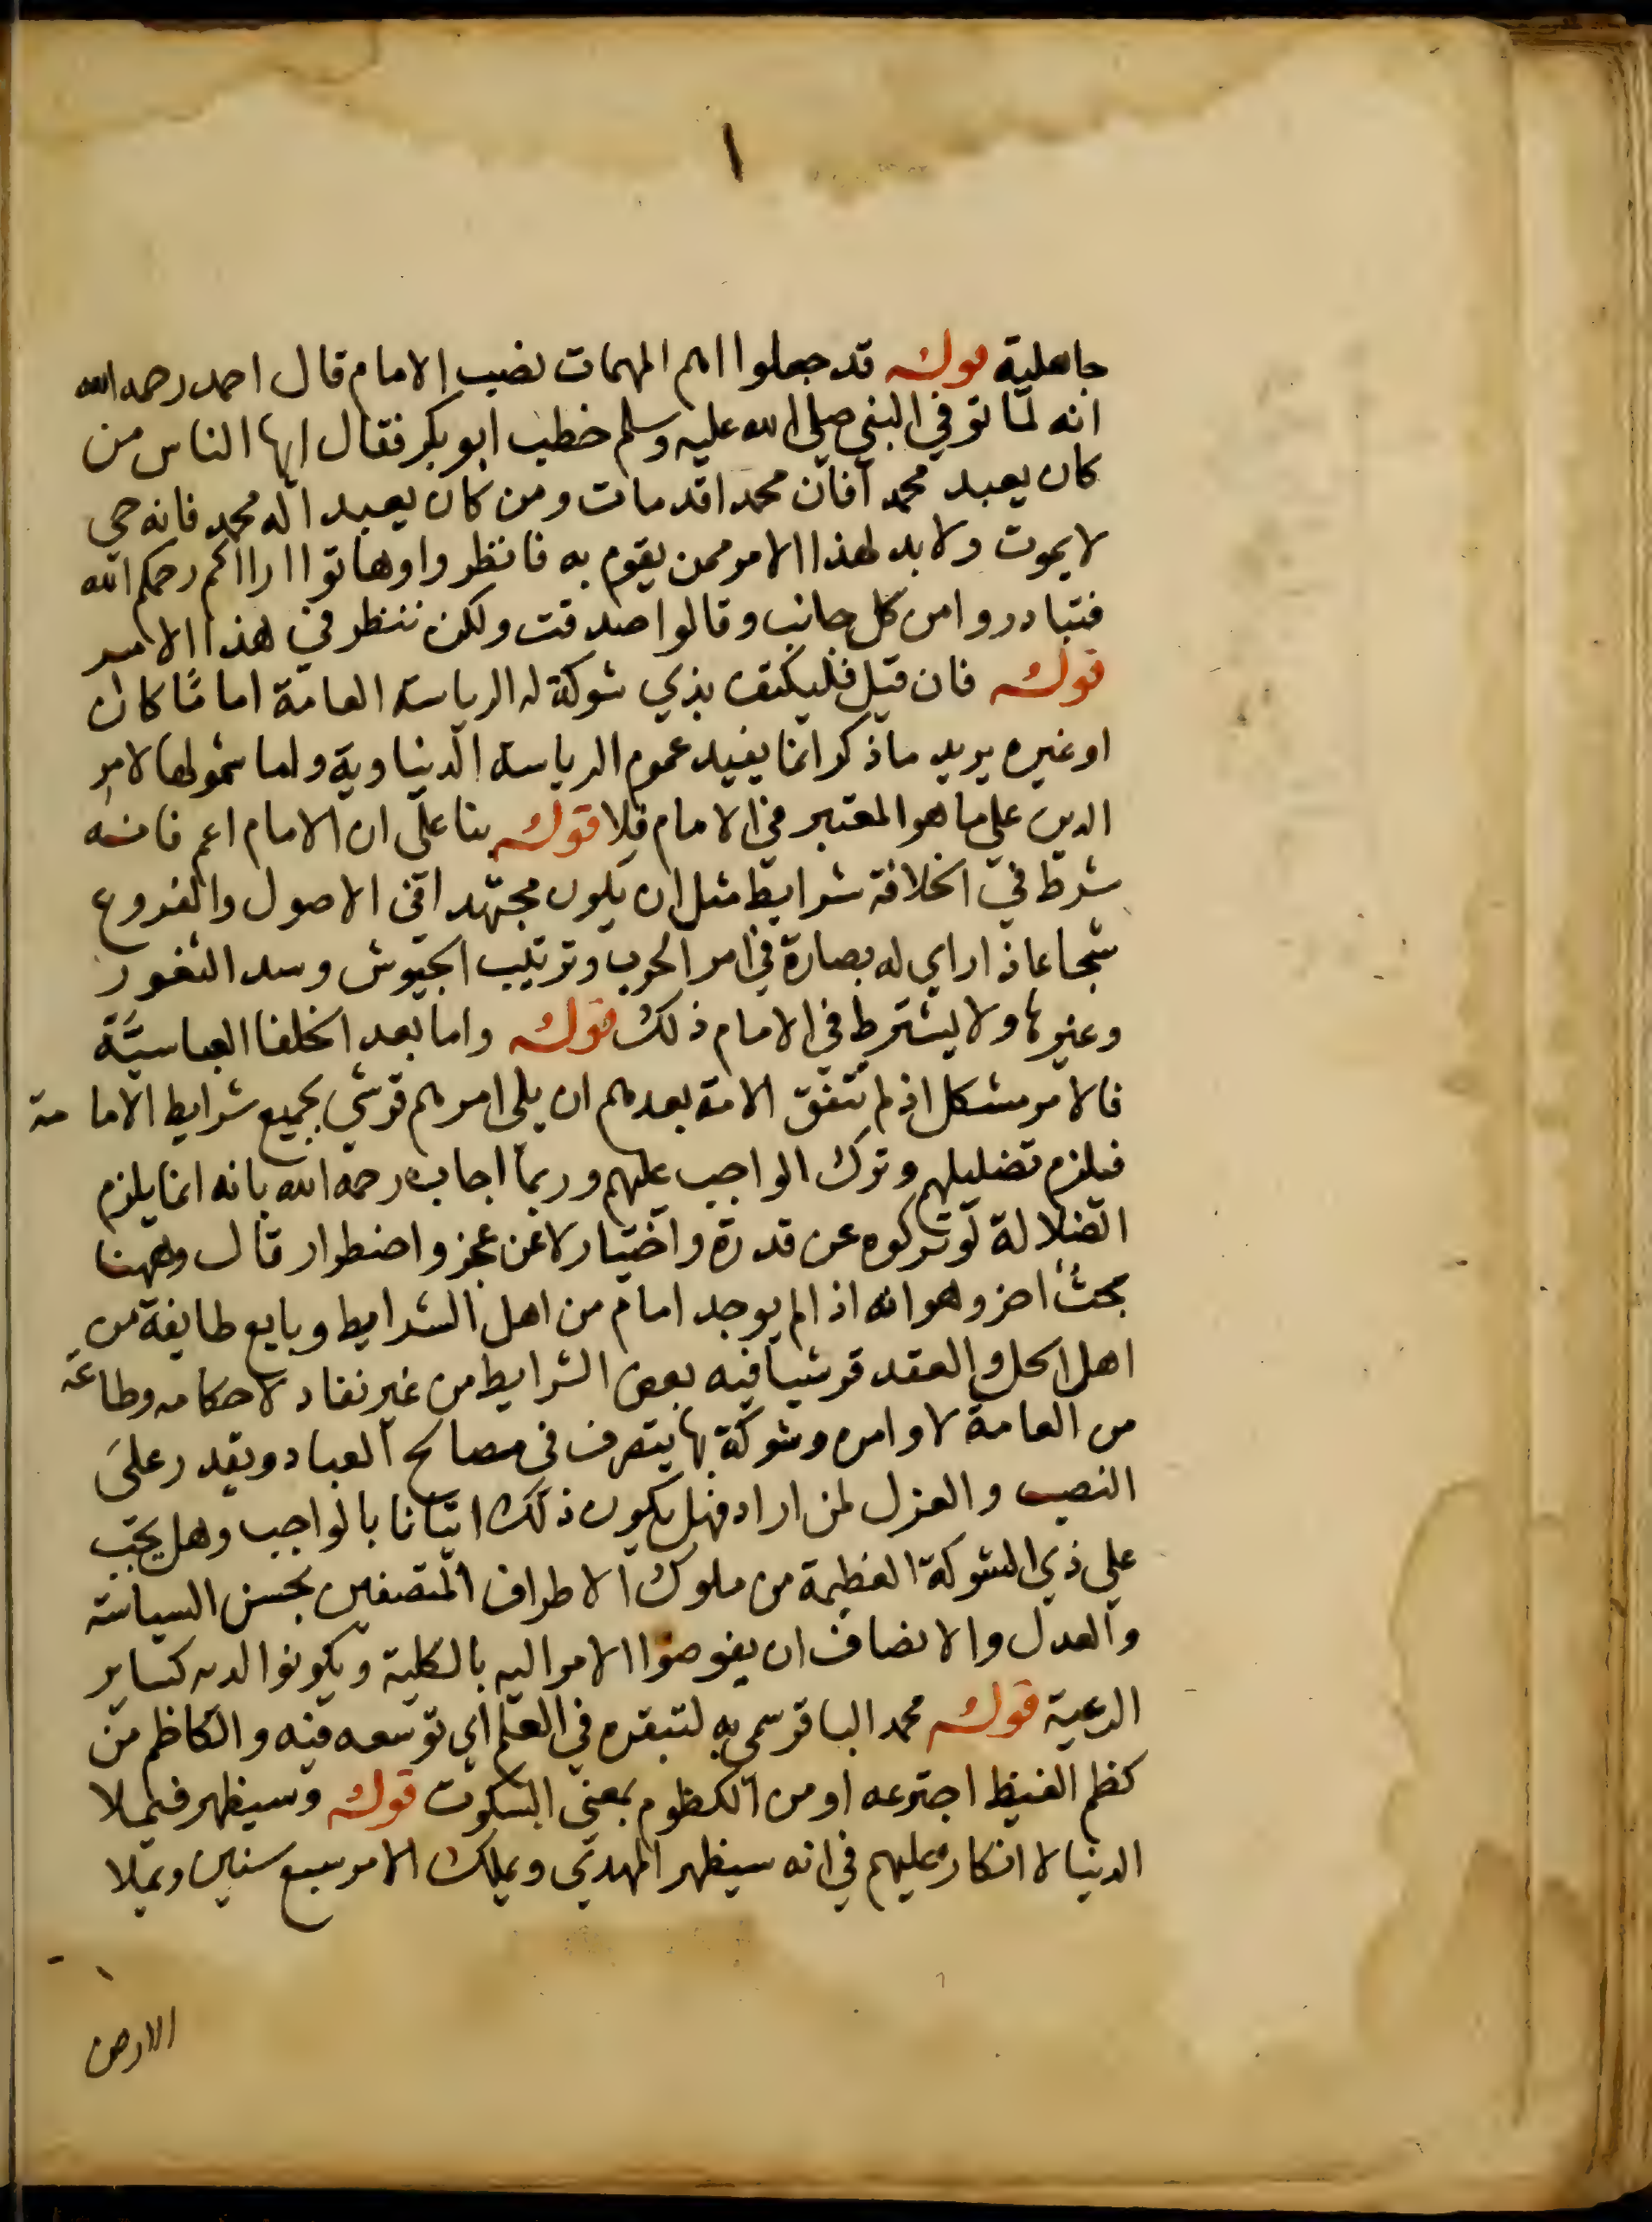 ١
جاهلية قوله قد جعلوا اهم المهمات نصب الامام قال احمد رحمه الله
انه لما توفي النبي صلى الله عليه وسلم خطب ابو بكر فقال ايها الناس من
كان يعبد محمدا فان محمدا قد مات ومن كان يعبد اله محمد فانه حي
لا يموت ولا بد لهذا الامر ممن يقوم به فانظروا وهاتوا اراكم رحمكم الله
فتبادروا من كل جانب وقالوا صدقت ولكن ننظر في هذا الامر
قوله فان قيل فليكتف بذي شوكة له الرياسة العامة اماما كان
او غيره يريد ما ذكر انما يفيد عموم الرياسة الدنياوية ولما شمولها لامر
الدين علي ما هو المعتبر في الامام فلا قوله بنا على ان الامام اعم فانه
شرط في الخلافة شرايط مثل ان يكون مجتهدا في الاصول والفروع
شجاعا ذا راي له بصارة في امر الحرب وترتيب الجيوش وسد الثغور
وغيرها ولا يشترط في الامام ذلك قوله واما بعد الخلفا العباسية
فالامر مشكل اذ لم تتفق الامة بعدهم ان يلى امرهم قرشي بجميع شرايط الامامة
فيلزم تضليلهم وترك الواجب عليهم وربما اجاب رحمه الله بانه انما يلزم
الضلالة لو تركوه عن قدرة واختيار لا عن عجز واضطرار قال وههنا
بحث اخر وهو انه اذا لم يوجد امام من اهل الشرايط وبايع طايفة من
اهل الحل والعقد قرشيا فيه بعض الشرايط من غير نفاد لاحكامه وطاعة
من العامة لاوامره وشوكة بها يتصرف في مصالح العباد ويقدر على
النصب والعزل لمن اراد فهل يكون ذلك اتيانا بالواجب وهل يجب
علي ذي الشوكة العظيمة من ملوك الاطراف المتصفين بحسن السياسة
والعدل والانصاف ان يفوضوا الامر اليه بالكلية ويكونوا لديه كساير
الرعية قوله محمد الباقر سمي به لتبقره في العلم اي توسعه فيه والكاظم من
كظم الغيظ اجترعه او من الكظوم بمعني السكوت قوله وسيظهر فيملا
الدنيا لا انكار عليهم في انه سيظهر المهدي ويملك الامر سبع سنين ويملا
الارض